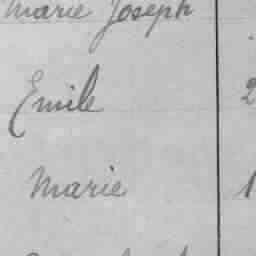 Marie Joseph
Emile 2
Marie 1